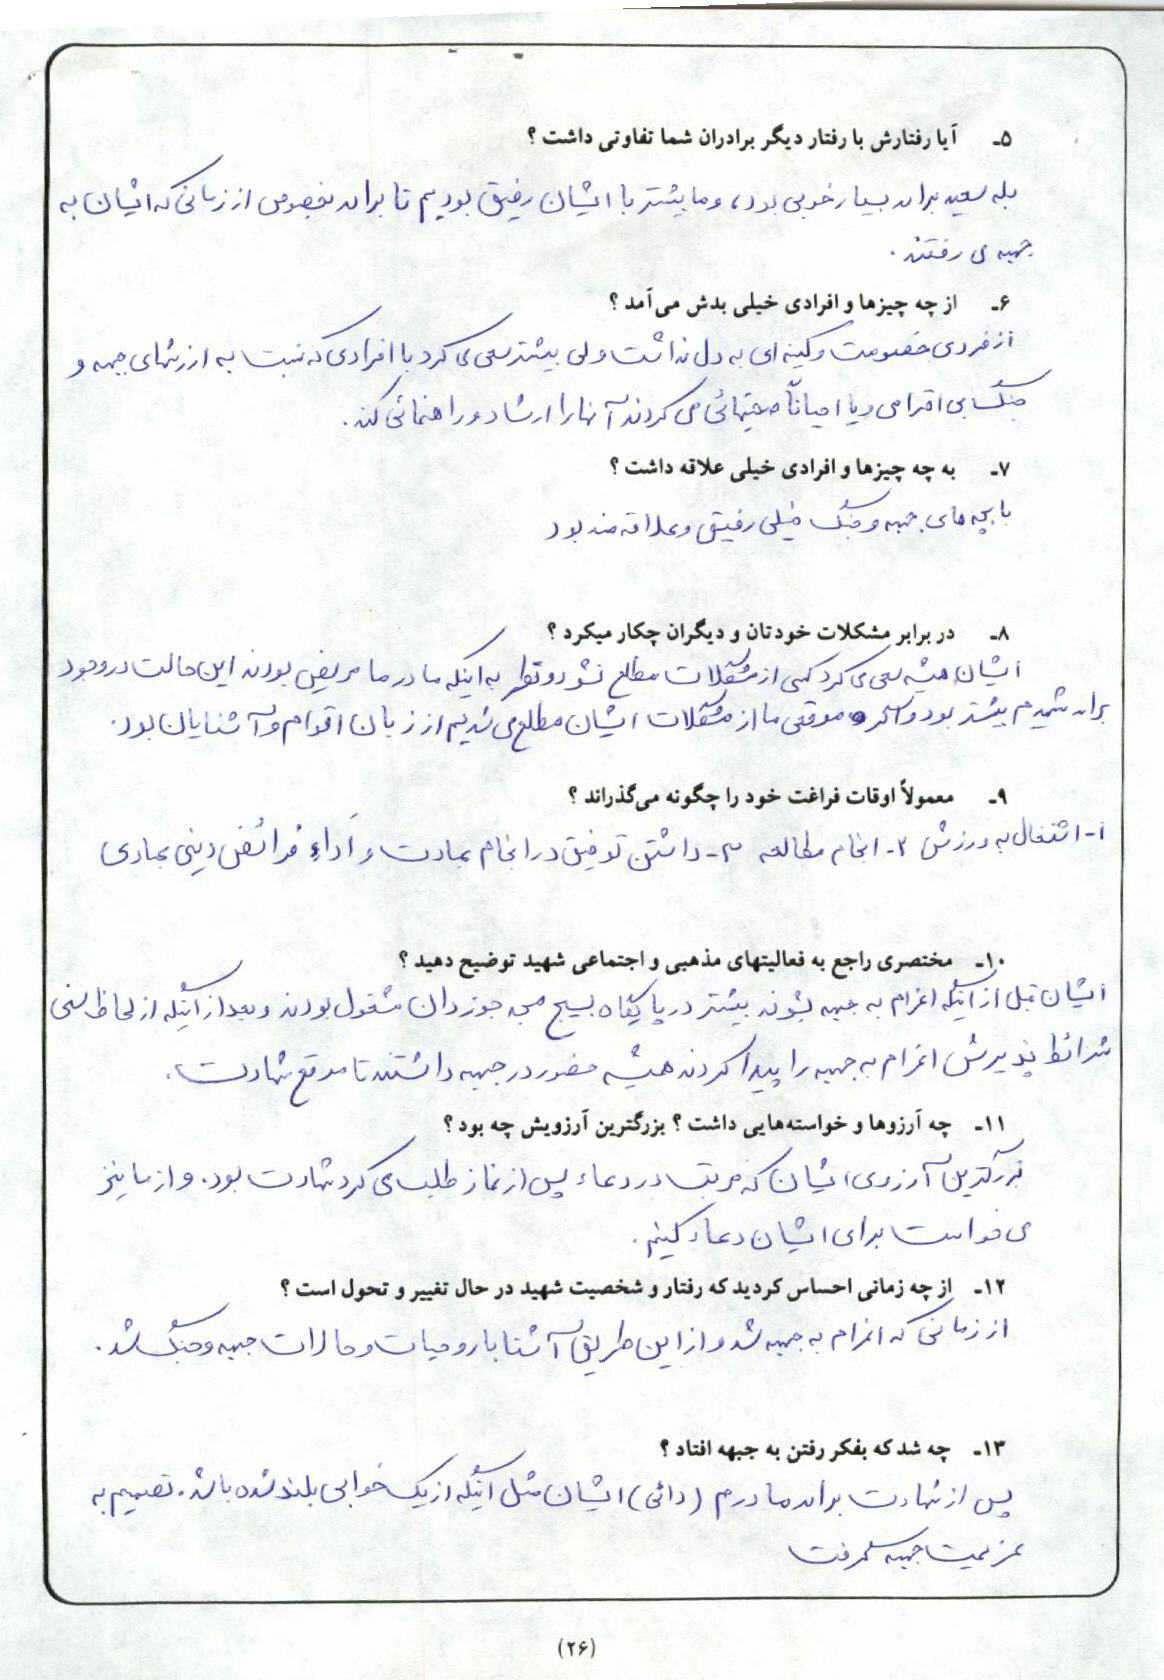 ۵ـ آیا رفتارش با رفتار دیگر برادران شما تفاوتی داشت ؟
بله سعید برادر بسیار خوبی بود، و ما بیشتر با ایشان رفیق بودیم تا برادر بخصوص از زمانی که ایشان به
جبهه می رفتند.
۶ـ از چه چیزها و افرادی خیلی بدش می‌آمد ؟
از فردی خصومت و کینه ای به دل نداشت ولی بیشتر سعی می کرد با افرادی که نسبت به ارزشهای جبهه و
جنگ بی احترامی و یا احیاناً صحبتهائی می کردند آنها را ارشاد و راهنمائی کند.
۷ـ به چه چیزها و افرادی خیلی علاقه داشت ؟
با بچه های جبهه و جنگ خیلی رفیق و علاقه مند بود
۸ـ در برابر مشکلات خودتان و دیگران چکار میکرد ؟
ایشان همیشه سعی می کرد کمی از مشکلات مطلع نشود و نظر به اینکه مادر ما مریض بودند این حالت در وجود
برادر شهیدم بیشتر بود و موقعی ما از مشکلات ایشان مطلع می شدیم از زبان اقوام و آشنایان بود.
۹ـ معمولاً اوقات فراغت خود را چگونه می‌گذراند ؟
۱- اشتغال به ورزش ۲- انجام مطالعه ۳- داشتن توفیق در انجام عبادت و اَداءِ فرائض دینی عبادی
۱۰ـ مختصری راجع به فعالیتهای مذهبی و اجتماعی شهید توضیح دهید ؟
ایشان قبل از اینکه اعزام به جبهه بشوند بیشتر در پایگاه بسیج جوزدان مشغول بودند و بعد از اینکه از لحاظ سنی
شرائط پذیرش اعزام به جبهه را پیدا کردند همیشه حضور در جبهه داشتند تا موقع شهادت.
۱۱ـ چه آرزوها و خواسته‌هایی داشت ؟ بزرگترین آرزویش چه بود ؟
بزرگترین آرزوی ایشان که مرتب در دعاء پس از نماز طلب می کرد شهادت بود. و از ما نیز
می خواست برای ایشان دعاء کنیم.
۱۲ـ از چه زمانی احساس کردید که رفتار و شخصیت شهید در حال تغییر و تحول است ؟
از زمانی که اعزام به جبهه شد و از این طریق آشنا با روحیات و حالات جبهه و جنگ شد.
۱۳ـ چه شد که بفکر رفتن به جبهه افتاد ؟
پس از شهادت برادر مادرم (دائی) ایشان مثل اینکه از یک خوابی بلند شده باشد. تصمیم به
عزیمت جبهه گرفت
(۲۶)